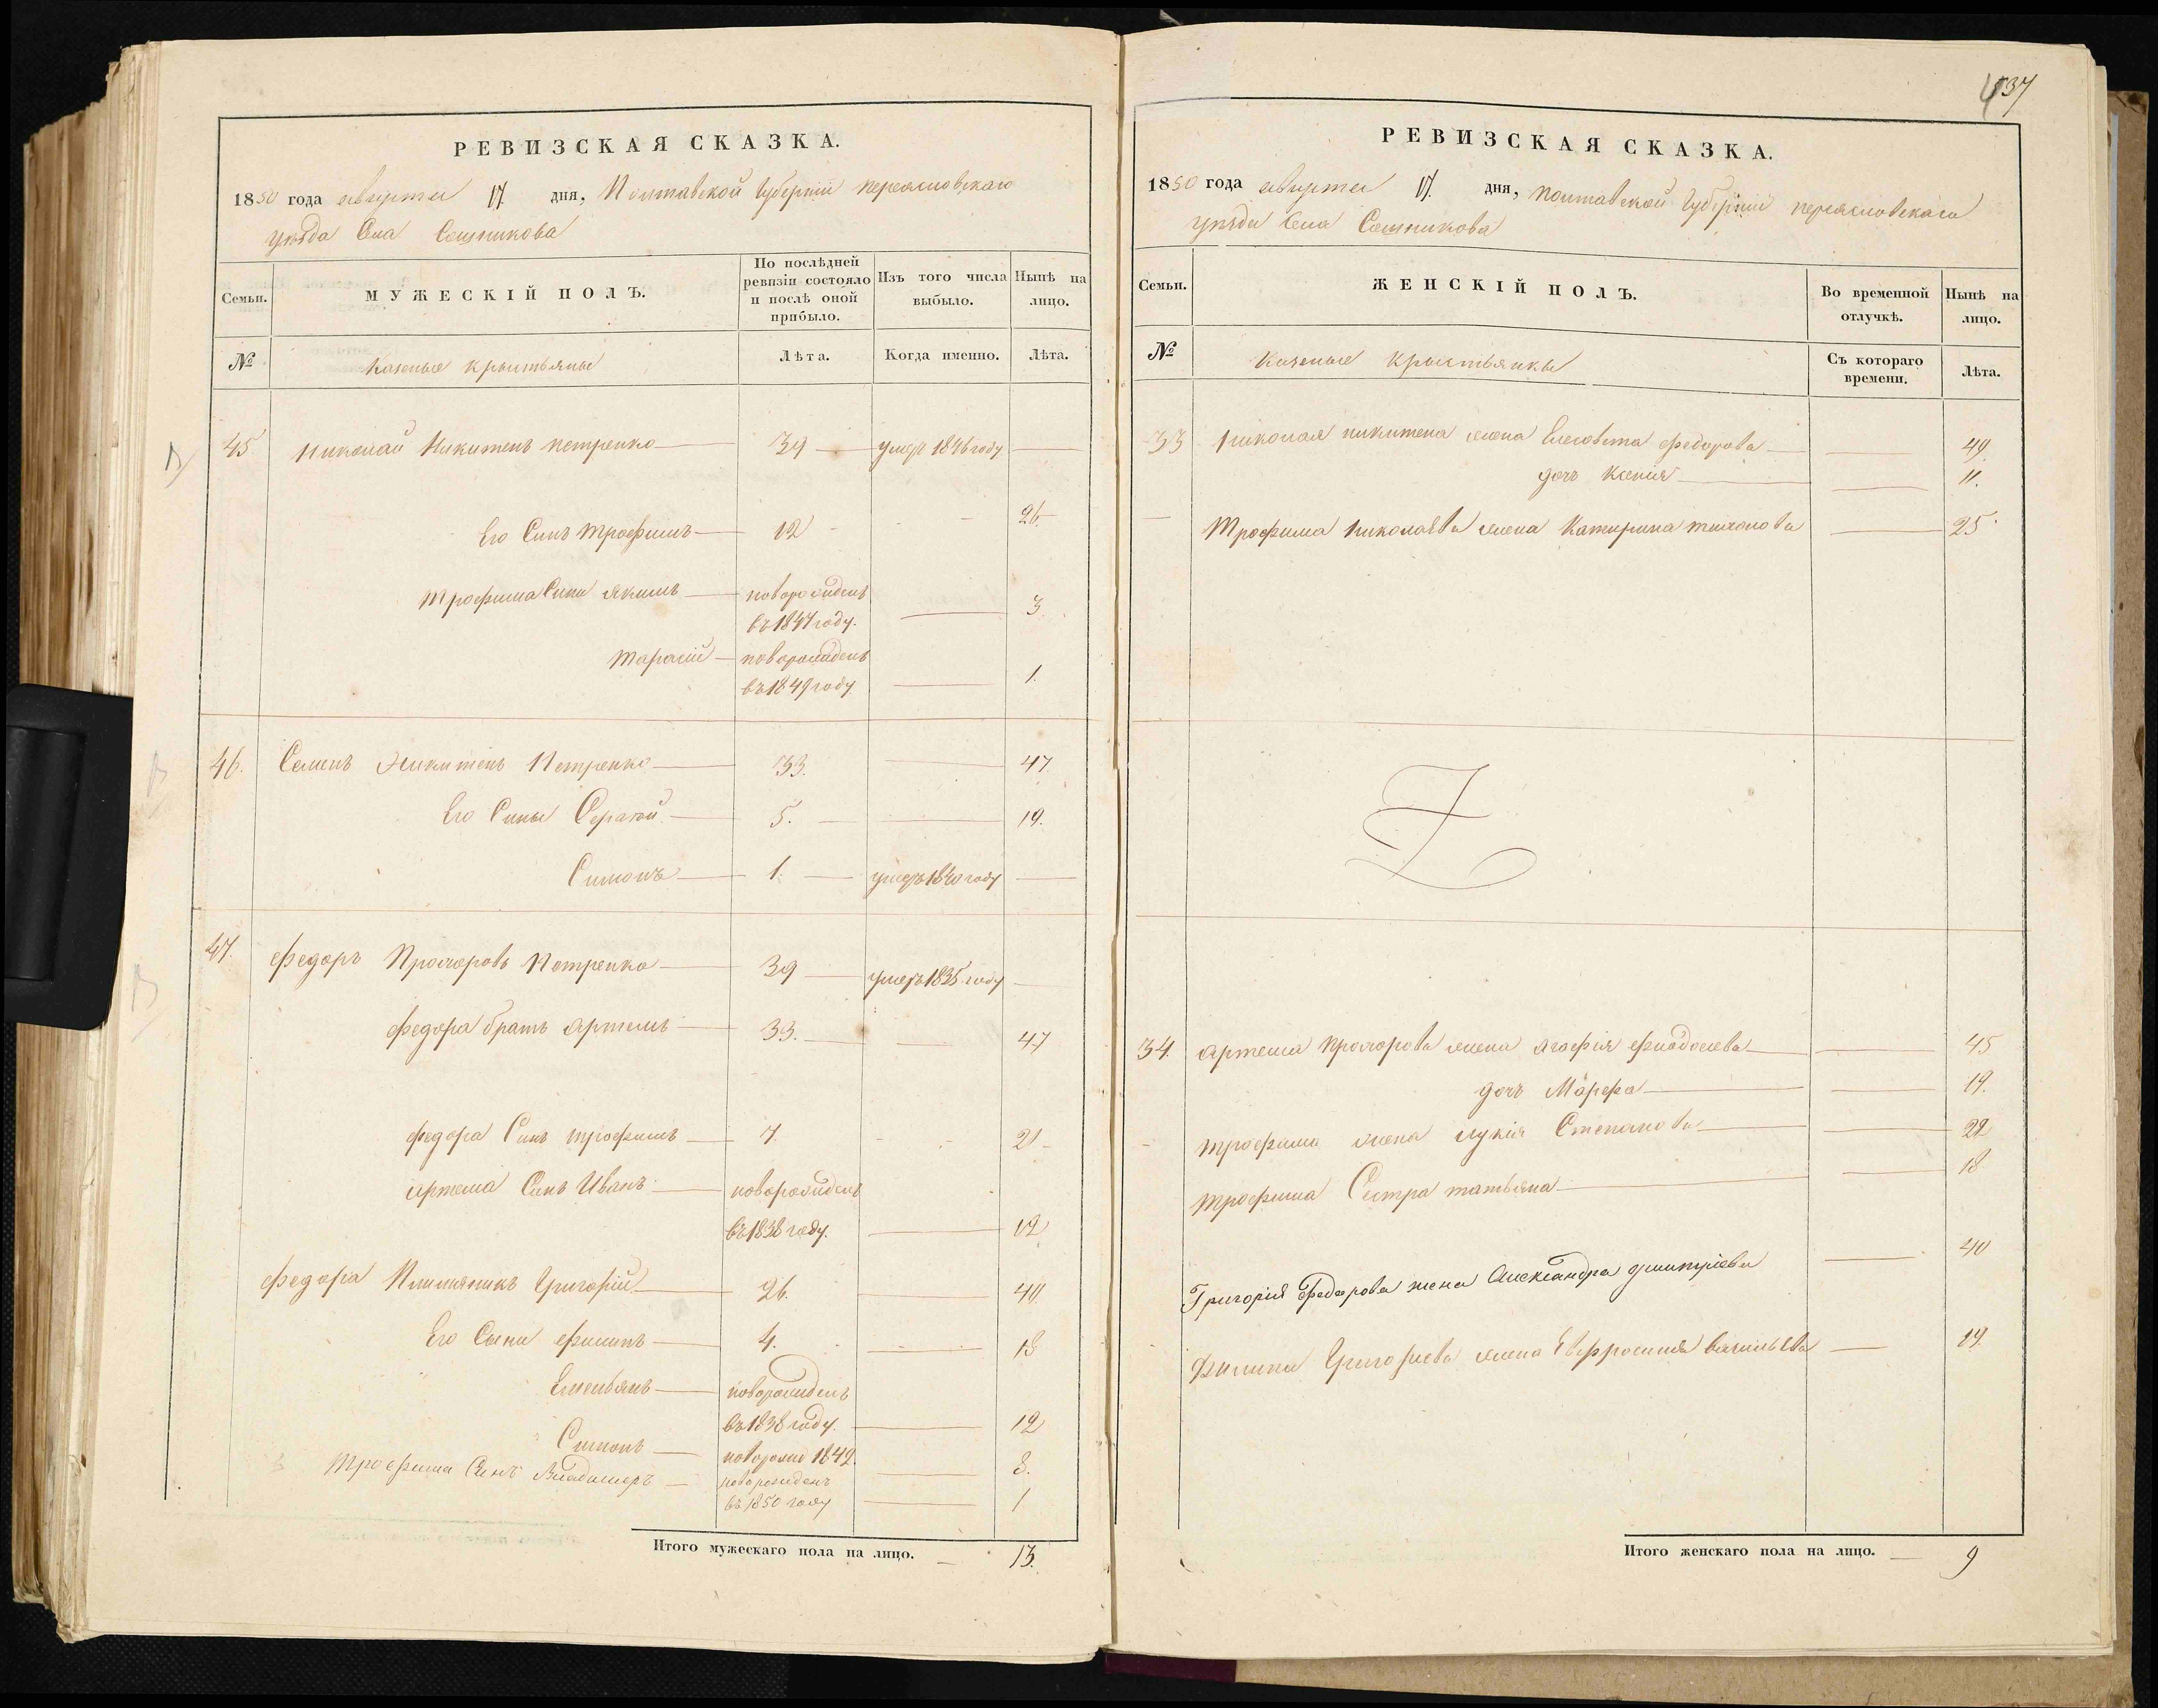 РЕВИЗСКАЯ СКАЗКА.
1850 года августа 17 дня, Полтавской Губерніи переясловскаго
уезда Села Сошникова
Семьи. МУЖЕСКІЙ ПОЛЪ. По послѣдней ревизіи состояло и послѣ оной прибыло. Изъ того числа выбыло. Нынѣ на лицо.
№ Казеные крыстьяны Лѣта. Когда именно. Лѣта.
45. Николай Никитенъ петренко 34 умеръ 1846 году
Его Синъ Трофимъ 12 26
Трофима Сини Якимъ новорожденъ 3
въ 1847 году.
Тарасій новорожденъ 1.
въ 1849 году
46. Семенъ Никитенъ Петренко 33. 47
Его Сины Сергѣй 5. 19.
Симонъ 1. умеръ 1840 году
47. Федоръ Прохоровъ Петренко 39 умеръ 1835 году
Федора братъ Артемъ 33. 47
Федора Синъ трофимъ 7. 21
Артема Синъ Иванъ новорожденъ
въ 1838 году. 12
Федора Племяникъ Григорій 26. 40
Его Сыни Филипъ 4. 18
Емельянъ новорожденъ
въ 1838 году. 12
Симонъ новорожд 1842. 8.
Трофима Синъ Владимеръ новорожденъ
въ 1850 году 1
Итого мужескаго пола на лицо. 13.
437
РЕВИЗСКАЯ СКАЗКА.
1850 года августа 17. дня, полтавской Губерніи переясловскаго
уезда Села Сошникова
Семьи. ЖЕНСКІЙ ПОЛЪ. Во временной отлучкѣ. Нынѣ на лицо.
№ Казеные Крыстьянки Съ котораго времени. Лѣта.
33 Николая никитена жена Елесовета федорова 49.
дочъ Ксенія 11.
Трофима Николаева жена Катирина тихонова 25
34. Артема прохорова жена Агафія 45
дочъ Марфа 19.
трофима жена лукія Степанова 22
трофима Сестра татьяна 18
Григорія Федорова жена Александра дмитріева 40
Филипа Григорыева жена Евфросинія васильева 19.
Итого женскаго пола на лицо. 9